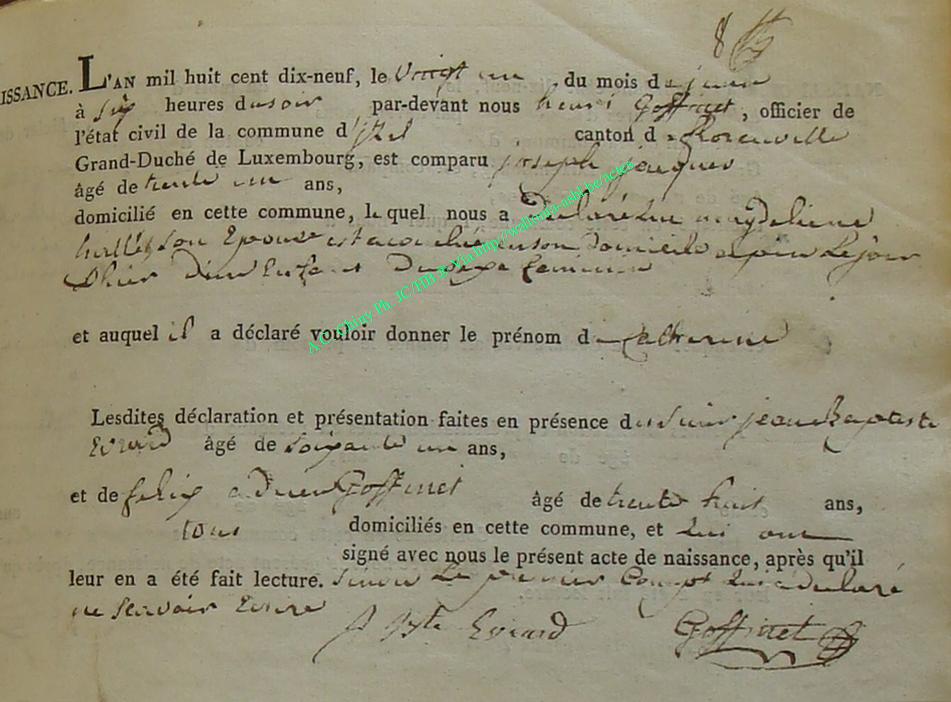 8
ISSANCE. L'AN mil huit cent dix-neuf, le Vingt un du mois de juin
à six heures du soir par-devant nous henri Goffinet, officier de
l'état civil de la commune d'izel canton de florenville
Grand-Duché de Luxembourg, est comparu joseph jacques
âgé de trente un ans,
domicilié en cette commune, lequel nous a declaré que magdeliene
son Epouse est accouchée en son domicile depuis le jour
D'hier d'un Enfant Du sexe feminin
et auquel il a déclaré vouloir donner le prénom de Catherine
Lesdites déclaration et présentation faites en présence du sieur jean Baptiste
Evrard âgé de soixante un ans,
et de felix Goffinet âgé de trente huit ans,
tous domiciliés en cette commune, et qui ont
signé avec nous le présent acte de naissance, après qu'il
leur en a été fait lecture. sinon le premier Compt qui a declaré
ne scavoir Ecrire
J Bste Evrard Goffinet